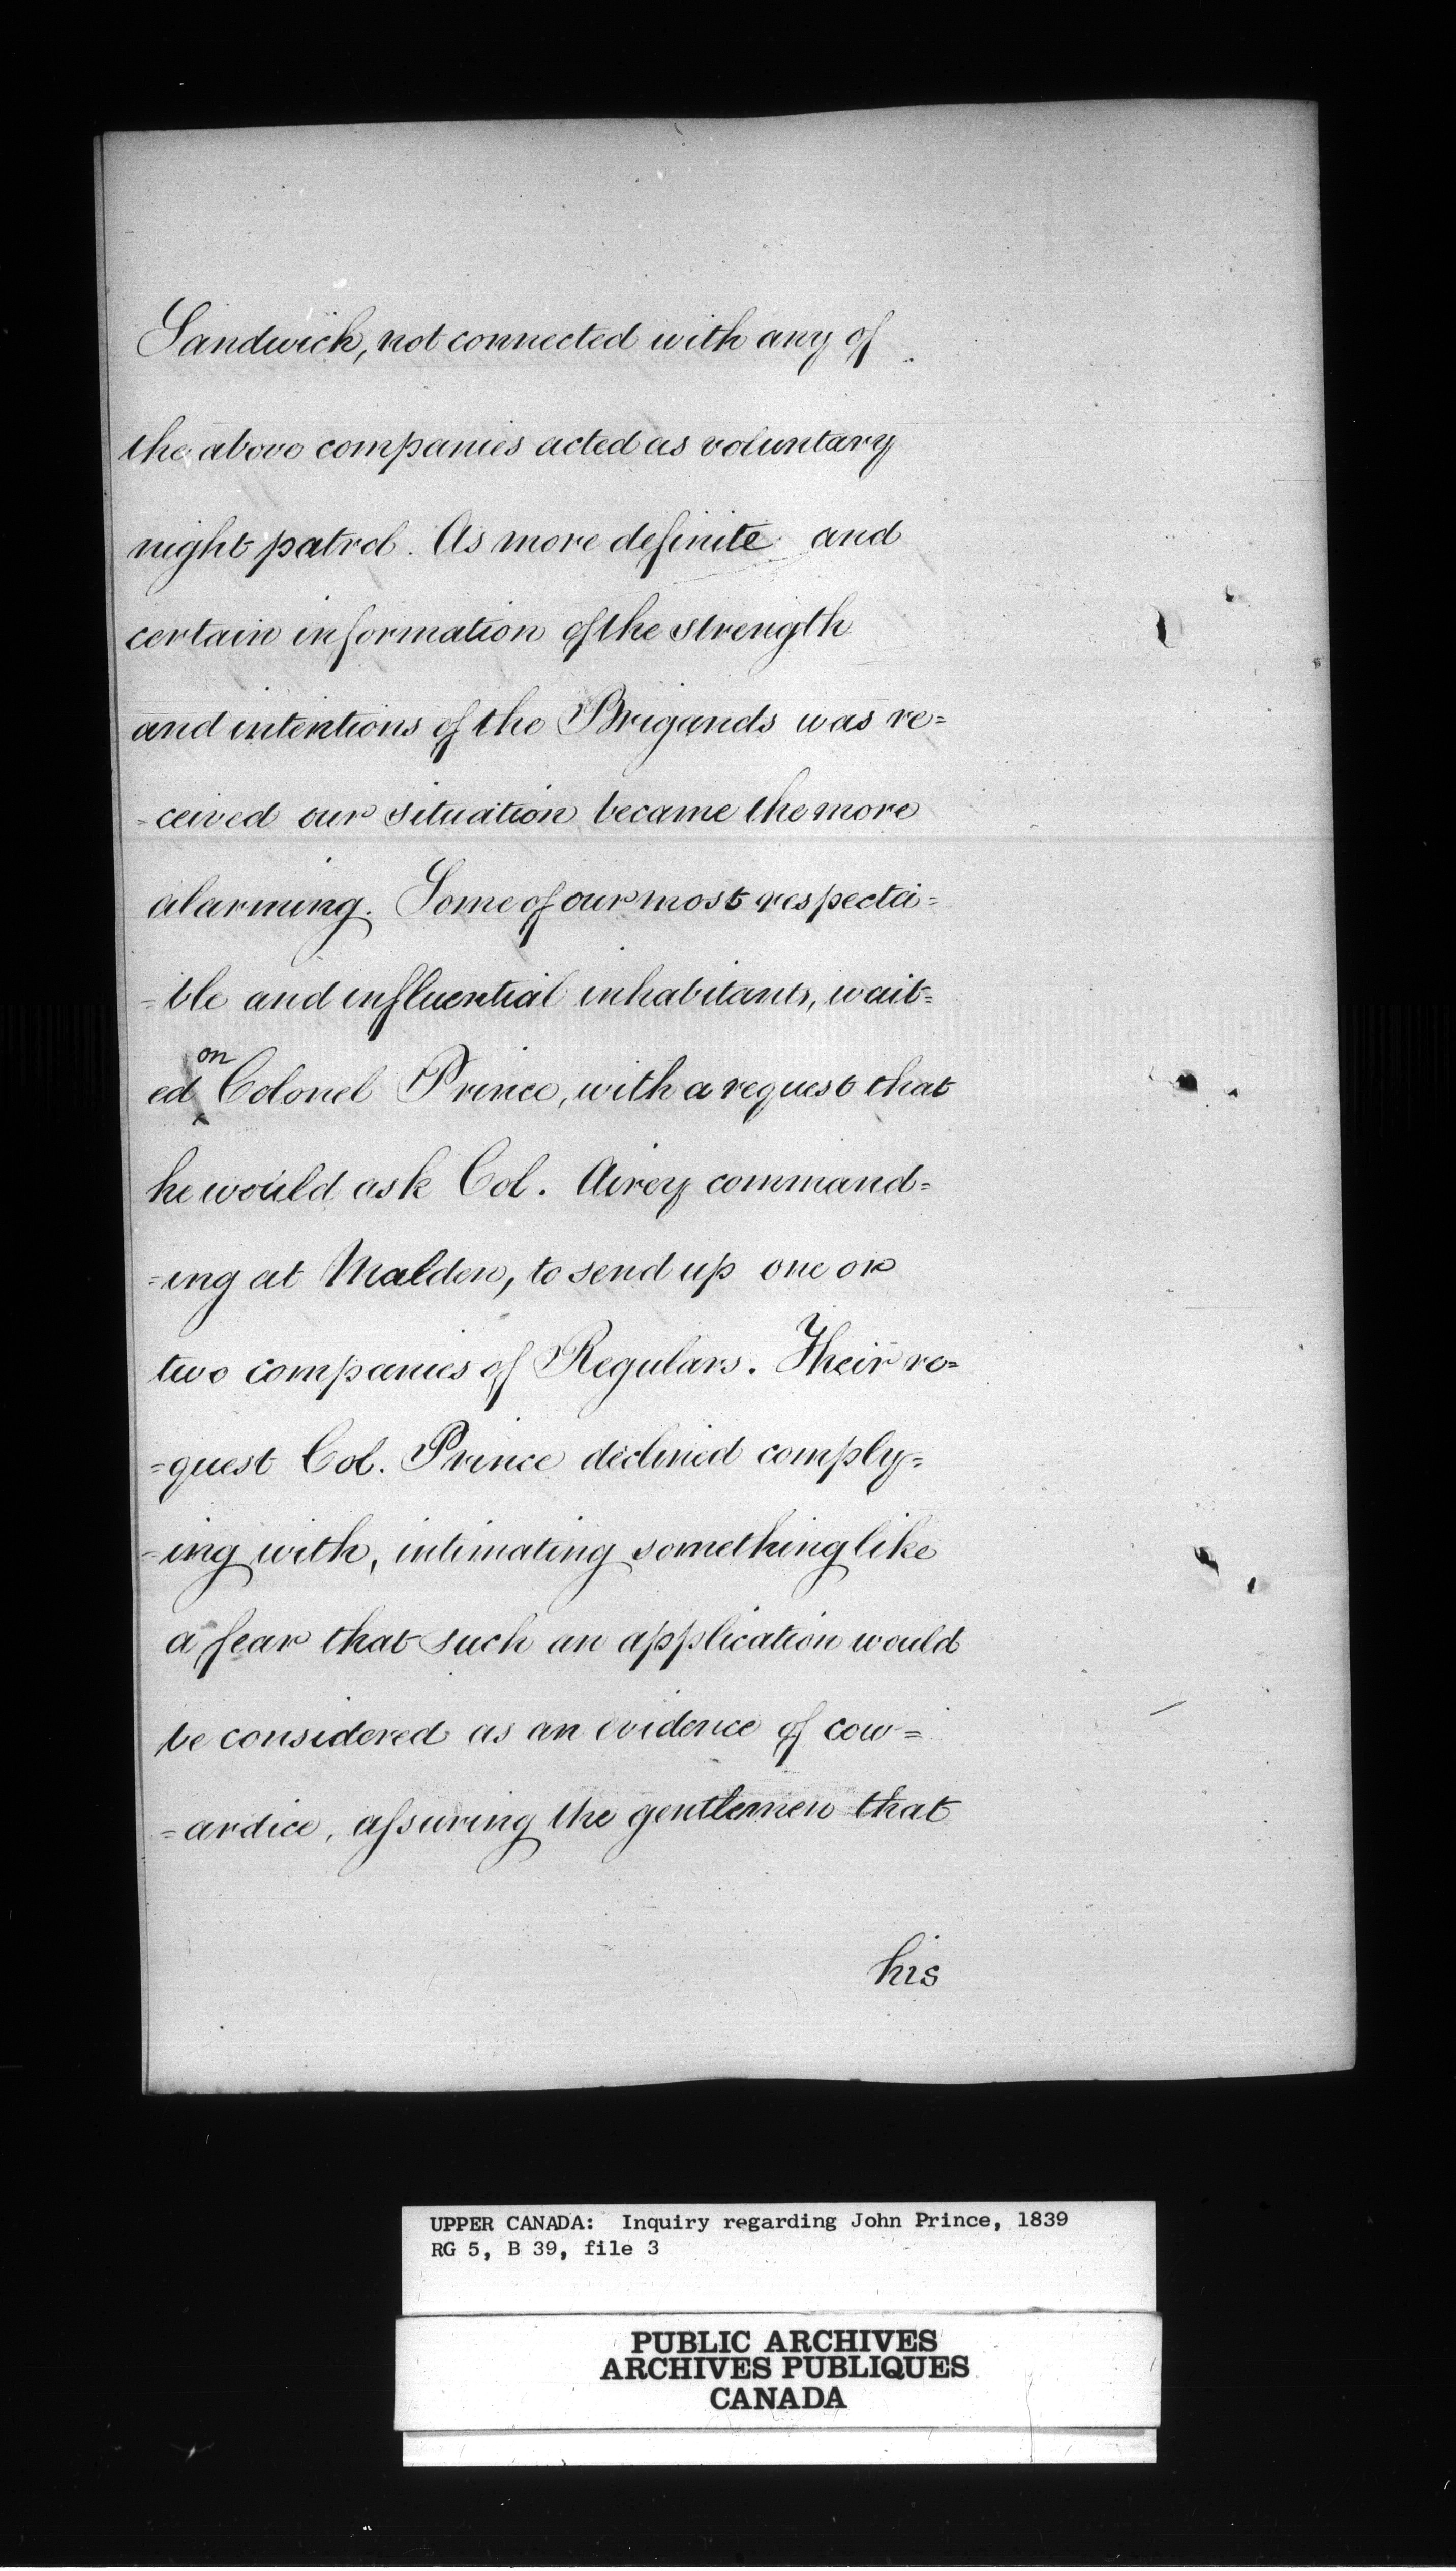 Sandwich, not connected with any of
the above companies acted as voluntary
night patrol. As more definite and
certain information of the strength
and intentions of the Brigands was re=
=ceived our situation became the more
alarming. Some of our most respecta=
=ble and influential inhabitants, wait=
ed on Colonel Prince, with a request that
he would ask Col. Airey command=
=ing at Malden, to send up one or
two companies of Regulars. Their re=
=quest Col. Prince declined comply=
=ing with, intimating something like
a fear that such an application would
be considered as an evidence of cow=
=ardice, assuring the gentlemen that
his
UPPER CANADA: Inquiry regarding John Prince, 1839
RG 5, B 39, file 3
PUBLIC ARCHIVES
ARCHIVES PUBLIQUES
CANADA